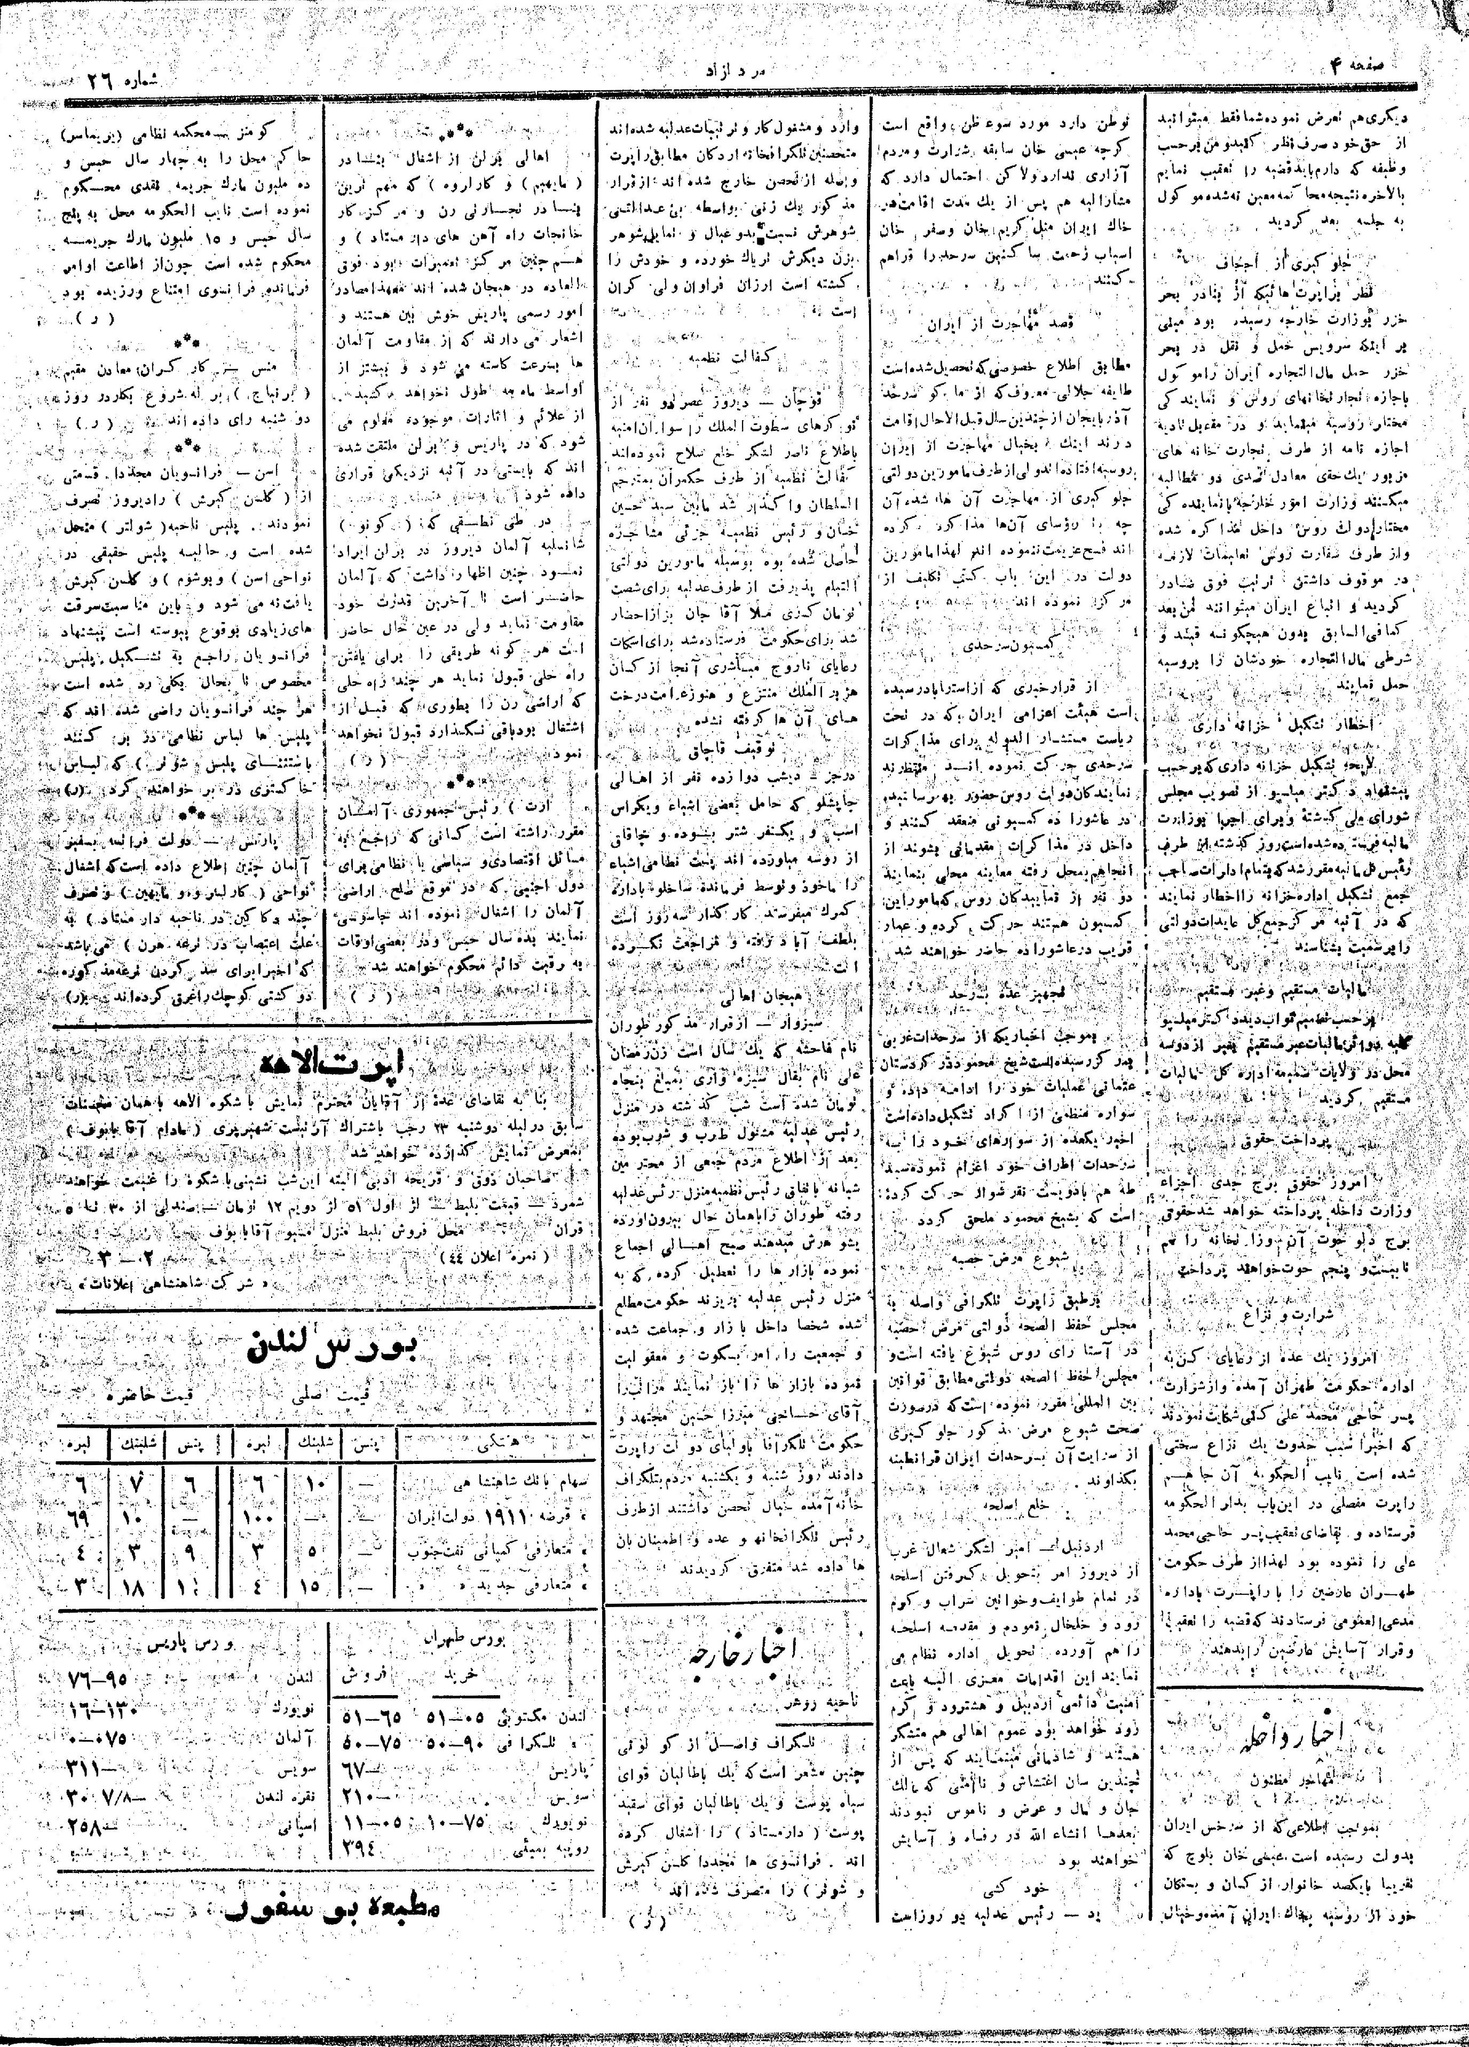 صفحه ۴
مرد آزاد
شماره ۲۶
دیگری هم تعرض نموده شما فقط میتوانید
از حق خود صرف نظر کنید و من بر حسب
وظیفه که دارم باید قضیه را تعقیب نمایم
بالاخره نتیجه محاکمه معین نه شده موکول
به جلسه بعد گردید
جلوگیری از اجحاف
نظر براپرت هائیکه از بنادر بحر
خزر بوزارت خارجه رسیده بود مبنی
بر اینکه سرویس حمل و نقل در بحر
خزر حمل مال التجاره ایران را موکول
باجازه تجارتخانهای روس و نمایندگی
مختار روسیه مینماید و در مقابل تادیه
اجازه نامه از طرف تجارت خانه های
مزبور یک حقی معادل صدی دو مطالبه
میکنند وزارت امور خارجه با نماینده گی
مختار دولت روس داخل مذاکره شده
و از طرف سفارت روس تعلیمات لازمه
در موقوف داشتن ترتیب فوق صادر
گردید و اتباع ایران میتوانند من بعد
کمافی السابق بدون هیچگونه قید و
شرطی مال التجاره خودشان را بروسیه
حمل نمایند
اخطار تشکیل خزانه داری
لایحه تشکیل خزانه داری که بر حسب
پیشنهاد دکتر میلسپو از تصویب مجلس
شورای ملی گذشته و برای اجرا بوزارت
مالیه فرستاده شده است روز گذشته از طرف
رئیس کل مالیه مقرر شد که بتمام ادارات صاحب
جمع تشکیل اداره خزانه را اخطار نمایند
که در آتیه مرکز جمع کل عایدات دولتی
را برسمیت بشناسند
مالیات مستقیم وغیر مستقیم
محل در ولایات ضمیمه اداره کل مالیات
مستقیم گردید
پرداخت حقوق
امروز حقوق برج جدی اجزاء
وزارت داخله پرداخته خواهد شد حقوق
برج دلو حوت آن وزارتخانه را هم
تا بیست و پنجم حوت خواهند پرداخت
شرارت و نزاع
امروز یک عده از رعایای کن به
اداره حکومت طهران آمده و از شرارت
پسر حاجی محمد علی کنی شکایت نمودند
که اخیرا سبب حدوث یک نزاع سختی
شده است نایب الحکومه آن جا هم
راپرت مفصلی در این باب بدار الحکومه
فرستاده و تقاضای تعقیب پسر حاجی محمد
علی را نموده بود لهذا از طرف حکومت
طهران عارضین را با راپرت باداره
مدعی العمومی فرستادند که قضیه را تعقیب
و قرار آسایش عارضین را بدهند
اخبار داخله
مهاجر مظنون
بموجب اطلاعی که از سرخس ایران
بدولت رسیده است عیسی خان بلوچ که
تقریبا با یکصد خانوار از کسان و بستگان
خود از روسیه بخاک ایران آمده و خیال
توطن دارد مورد سوء ظن واقع است
گرچه عیسی خان سابقه شرارت و مردم
آزاری ندارد ولاکن احتمال دارد که
مشارالیه هم پس از یک مدت اقامت در
خاک ایران مثل کریم خان و صفر خان
اسباب زحمت ساکنین سرحد را فراهم
کنند
قصد مهاجرت از ایران
مطابق اطلاع خصوصی که تحصیل شده است
طایفه جلالی معروف که از ماکو سرحد
آذربایجان از چندین سال قبل الاحال اقامت
دارند اینک بخیال مهاجرت از ایران
بروسیه افتاده اند ولی از طرف مامورین دولتی
جلوگیری از مهاجرت آن ها شده آن
چه با رؤسای آن‌ها مذاکره کرده
اند فسخ عزیمت ننموده اند لهذا مامورین
دولت در این باب کسب تکلیف از
مرکز نموده اند
کمیسیون سرحدی
از قرار خبری که از استراباد رسیده
است هیئت اعزامی ایران که در تحت
ریاست مستشار الدوله برای مذاکرات
سرحدی حرکت نموده اند منتظرند
نمایندگان دولت روس حضور بهم رسانیده
در عاشوراده کمیسیونی منعقد کنند و
داخل در مذاکرات مقدماتی بشوند از
آنجا هم بمحل رفته معاینه محلی بنمایند
دو نفر از نمایندگان روس که مامور این
کمسیون هستند حرکت کرده و عماد
قریب در عاشوراده حاضر خواهند شد
تجهیز عده بسرحد
بموجب اخباریکه از سرحدات غربی
بمرکز رسیده است شیخ محمود در کردستان
عثمانی عملیات خود را ادامه داده و
سواره منظمی از اکراد تشکیل داده است
اخیر یکعده از سوارهای خود را به
سرحدات اطراف خود اعزام نموده سید
طه هم با دویست نفر سوار حرکت کرده
است که بشیخ محمود ملحق گردد
شیوع مرض حصبه
بر طبق راپرت تلگرافی واصله به
مجلس حفظ الصحه دولتی مرض حصبه
در آستا رای روس شیوع یافته است و
مجلس حفظ الصحه دولتی مطابق قوانین
بین المللی مقرر نموده است که در صورت
صحت شیوع مرض مذکور جلوگیری
از سرایت آن بسرحدات ایران قرانطینه
بگذاوند .
خلع اسلحه
اردبیل — امیر لشکر شمال غرب
از دیروز امر بتحویل گرفتن اسلحه
در تمام طوایف و خوانین سراب و گرم
رود و خلخال نمودم و مقدمه اسلحه
را هم آورده تحویل اداره نظام می
نمایند این اقدامات معزی الیه باعث
امنیت دائمی اردبیل و هشترود و گرم
رود خواهد بود عموم اهالی هم متشکر
هستند و شادمانی مینمایند که پس از
چندین سال اغتشاش و ناامنی که مالک
جان و مال و عرض و ناموس نبودند
بعدها انشاء الله در رفاه و آسایش
خواهند بود
خود کشی
یزد — رئیس عدلیه دو روز است
وارد و مشغول کار و ترتیبات عدلیه شده اند
متحصنین تلگرافخانه اردکان مطابق راپرت
واصله از تحصن خارج شده اند ؛ از قرار
مذکور یک زنی بواسطه بی عدالتی
شوهرش نسبت بدو عیال و تمایل شوهر
بزن دیگرش تریاک خورده و خودش را
کشته است ارزان فراوان ولی گران
است
کفالت نظمیه
قوچان — دیروز عصر دو نفر از
نوکرهای سطوت الملک را سواران امنیه
باطلاع ناصر لشکر خلع سلاح نموده اند
کفالت نظمیه از طرف حکمران بمترجم
السلطان واگذار شد مابین سید حسین
خان و رئیس نظمیه جزئی مشاجره
حاصل شده بود بوسیله مامورین دولتی
التیام پذیرفت از طرف عدلیه برای شصت
تومان گزی ملا آقا جان بزاز احضار
شد برای حکومت فرستاده شد برای اسکات
رعایای باروج مباشری آنجا از کسان
هژبر الملک منتزع و هنوز غرامت درخت
های آن ها گرفته نشده
توقیف قاچاق
درجز — دیشب دوازده نفر از اهالی
چاپشلو که حامل بعضی اشیاء و یکراس
اسب و یکنفر شتر بوده و چاقاق
از روسه میاورده اند پست نظامی اشیاء
را ماخوذ و توسط فرمانده ساخلو باداره
گمرک میفرستد کارگذار سه روز است
بلطف آباد رفته و مراجعت نکرده
است
هیجان اهالی
سبزوار — از قرار مذکور طوران
نام فاحشه که یک سال است زن رمضان
علی نام بقال سبزه واری بمبلغ پنجاه
تومان شده است شب گذشته در منزل
رئیس عدلیه مشغول طرب و شرب بوده
بعد از اطلاع مردم جمعی از محترمین
شبانه باتفاق رئیس نظمیه منزل رئیس عدلیه
رفته طوران را باهمان حال بیرون آورده
بشوهرش میدهند صبح اهالی اجماع
نموده بازار ها را تعطیل کرده که به
منزل رئیس عدلیه بریزند حکومت مطلع
شده شخصا داخل بازار و جماعت شده
و جمعیت را امر بسکوت و معقولیت
نموده بازار ها را باز نمایند مراتب را
آقای حاجی میرزا حسین مجتهد و
حکومت تلگرافا باولیای دولت راپرت
دادند روز شنبه و یکشنبه مردم بتلگراف
خانه آمده خیال تحصن داشتند از طرف
رئیس تلگرافخانه و عده و اطمینان بان
ها داده شد متفرق گردیدند
اخبار خارجه
ناحیه روهر
تلگراف واصل از کولونی
چنین مشعر است که یک باطالیان قوای
سیاه پوست و یک باطالیان قوای سفید
پوست ( دارمستاد ) را اشغال کرده
اند . فرانسوی ها مجددا کلسن کیرش
و شولر ) را متصرف شده اند
( ر )
***
اهالی برلن از اشغال بنادر
( مانهیم ) و کارلروه ) که مهم ترین
بنادر تجارتی رن و مرکز کار
خانجات راه آهن های دارمستاد ) و
هم چنین مرکز تعمیرات بود فوق
العاده در هیجان شده اند معهذا مصادر
امور رسمی پاریس خوش بین هستند و
اشعار می دارند که از مقاومت آلمان
ها بسرعت کاسته می شود و بیشتر از
اواسط ماه مه طول نخواهد کشید .
از علائم و اثارات موجوده معلوم می
شود که در پاریس و برلن ملتفت شده
اند که بایستی در آتیه نزدیکی قراری
داده شود
در طی نطقی که ( کونو )
شانسلیه آلمان دیروز در برلن ایراد
نمود چنین اظهار داشت که آلمان
حاضر است تا آخرین قدرت خود
مقاومت نماید ولی در عین حال حاضر
است هر گونه طریقی را برای یافتن
راه حلی قبول نماید هر چند راه حلی
که اراضی رن را بطوری که قبل از
اشتغال بود باقی نگذارد قبول نخواهد
نمود ( ر )
***
ابرت ) رئیس جمهوری آلمان
مقرر داشته است کسانی که راجع به
مسائل اقتصادی و سیاسی یا نظامی برای
دول اجنبی که در موقع صلح اراضی
آلمان را اشغال نموده اند جاسوسی
نمایند بده سال حبس و در بعضی اوقات
به رقبت دائم محکوم خواهند شد
( ر )
کومنز — محکمه نظامی (بریماس)
حاکم محل را به چهار سال حبس و
ده ملیون مارک جریمه نقدی محکوم
نموده است نایب الحکومه محل به پنج
سال حبس و ۱۵ ملیون مارک جریمه
محکوم شده است چون از اطاعت اوامر
فرمانده فرانسوی امتناع ورزیده بود
( ر )
***
متس — کارگران معادن مقیم
( برنباج ) بر له شروع بکار در روز
دو شنبه رای داده اند ( ر )
***
اسن — فرانسویان مجددا قسمتی
از ( کلسن کیرش ) را دیروز تصرف
نمودند . پلیس ناحیه ( شولتر ) منحل
شده است و حالیه پلیس خفیفی در
نواحی اسن ) و بوشوم ) و کلسن کیرش
یافت نه می شود و باین مناسبت سرقت
های زیادی بوقوع پیوسته است پیشنهاد
فرانسویان راجع به تشکیل پلیس
مخصوص تا بحال بکلی رد شده است
هر چند فرانسویان راضی شده اند که
پلیس ها لباس نظامی در بر کنند
باستثنای پلیس شولر ) که لباس
خاکستری در بر خواهند کرد (ر)
***
پاریس — دولت فرانسه بسفیر
آلمان چنین اطلاع داده است که اشغال
نواحی ( کارلسروه و مانهین ) و تصرف
چند دکاکین در ناحیه دار مستاد ) به
علت اعتصاب در ترعه هرن ) می باشد
که اخیرا برای سد کردن ترعه مذکوره
دو کشتی کوچک را غرق کرده اند (ر)
اپرت الاهه
بنا به تقاضای عده از آقایان محترم نمایش با شکوه الاهه با همان محسنات
سابق در لیله دوشنبه ۲۳ رجب باشتراک آرتیست شهیر پری ( مادام آقا بابوف )
بمعرض نمایش گذارده خواهد شد
صاحبان ذوق و قریحه ادبی البته این شب نشینی با شکوه را غنیمت خواهند
شمرد — قیمت بلیط — از اول ۵۱ از دویم ۱۲ تومان — صندلی از ۳۰ تا ۵
قران محل فروش بلیط منزل مسیو آقا بابوف
( نمره اعلان ۴۴ ) ۰۲—۳
« شرکت شاهنشاهی اعلانات »
بورس لندن
قیمت اصلی قیمت حاضره
هتگی | پنس | شلینک | لیره | پنس | شلینک | لیره
سهام بانک شاهنشاهی | — | ۱۰ | ۶ | ۶ | ۷ | ۶
« قرضه ۱۹۱۱ دولت ایران | — | — | ۱۰۰ | — | ۱۰ | ۶۹
« متعارفی کمپانی نفت جنوب | — | ۵ | ۳ | ۹ | ۳ | ۴
« متعارفی جدید « « | — | ۱۵ | ۴ | ۱ | ۱۸ | ۳
بورس طهران
خرید فروش
لندن مکتوبی ۰۵—۵۱ ۶۵—۵۱
« تلگرافی ۹۰—۵۰ ۷۵—۵۰
پاریس ۶۷—
سویس ۲۱۰—
نویورک ۷۵—۱۰ ۰۵—۱۱
روپیه بمبئی ۳۹۴
بورس پاریس
لندن ۹۵—۷۶
نویورک ۱۳۰—۱۶
آلمان ۰۷۵—۰
سویس ۳۱۱—
نقره لندن ۷/۸—۳۰
اسپانی ۲۵۸—
مطبعه بوسفور